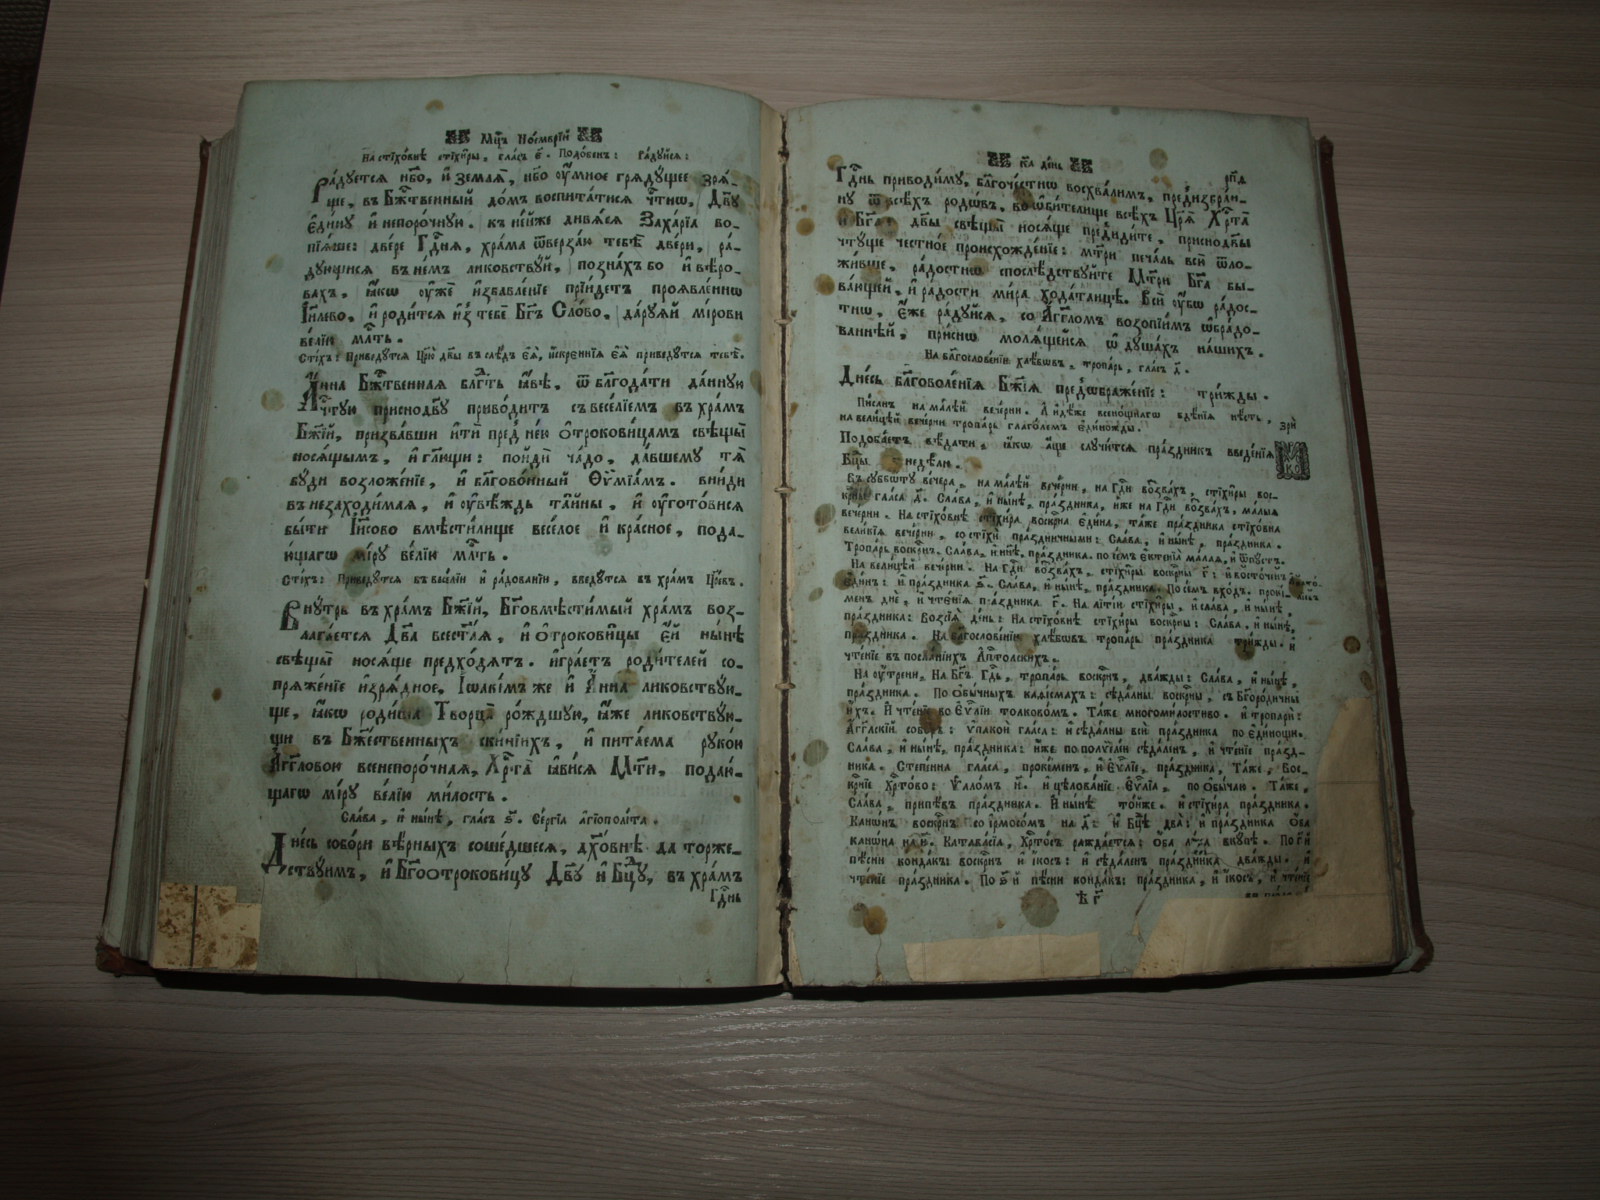 Мц҃ъ Ноемврїй
На стїхо́внѣ стїхи̑ры, гла́съ є҃. Подо́бенъ: Ра́дуйсѧ:
Ра́дуетсѧ нб҃о, и҆ землѧ̀, нб҃о ᲂу҆́мное грѧду́щее зрѧ́-
ще, въ Бж҃твенный до́мъ воспита́тисѧ чтⷭ҇нѡ, Дв҃у
є҆ди́ну и҆ непоро́чную. къ не́йже дивѧ́сѧ Заха́рїа во-
пїѧ́ше: две́ре Гдⷭ҇нѧ, хра́ма ѿверза́ю тебѣ̀ две́ри, ра́-
дующисѧ въ не́мъ ликовству́й, позна́хъ бо и҆ вѣ́ро-
вахъ, ꙗ҆́кѡ ᲂу҆жѐ и҆збавле́нїе прїи́детъ проѧвле́ннѡ
І҆и҃лево, и҆ роди́тсѧ и҆з̾ тебє̀ Бг҃ъ Сло́во, да́руѧй мі́рови
ве́лїю млⷭ҇ть.
Стїхъ: Приведу́тсѧ Цр҃ю̀ дв҃ы въ слѣ́дъ є҆ѧ̀, и҆́скреннїѧ є҆ѧ̀ приведу́тсѧ тебѣ̀.
А҆́нна Бж҃твеннаѧ блгⷣть ꙗ҆́вѣ, ѿ благода́ти да́нную
чⷭ҇тую приснодв҃у приво́дитъ съ весе́лїемъ въ хра́мъ
Бж҃їй, призва́вши и҆тѝ пред̾ не́ю ѻ҆трокови́цамъ свѣщы̀
носѧ́щымъ, и҆ гл҃ющи: пойдѝ ча́до, да́вшему тѧ̀
бу́ди возложе́нїе, и҆ благово́нный ѳѷмїа́мъ. вни́ди
въ незаходи́маѧ, и҆ ᲂу҆вѣ́ждь та̑йны, и҆ ᲂу҆гото́висѧ
бы́ти І҆и҃сово вмѣсти́лище весе́лое и҆ кра́сное, пода-
ю́щагѡ мі́ру ве́лїю млⷭ҇ть.
Стїхъ: Приведу́тсѧ въ весе́лїи и҆ ра́дованїи, введу́тсѧ въ хра́мъ Цр҃е́въ.
Вну́трь въ хра́мъ Бж҃їй, Бг҃овмѣсти́мый хра́мъ воз-
лага́етсѧ Дв҃а всест҃а́ѧ, и҆ ѻ҆трокови̑цы є҆́й ны́нѣ
свѣщы̀ носѧ́ще предхо́дѧтъ. и҆гра́етъ роди́телей со-
прѧже́нїе и҆зрѧ́дное, І҆ѡакі́мъ же и҆ А҆́нна ликовству́ю-
ще, ꙗ҆́кѡ роди́ша Творца̀ ро́ждшую, ꙗ҆́же ликовству́ю-
щи въ Бж҃е́ственныхъ ски́нїихъ, и҆ пита́ема руко́ю
А҆́гг҃ловою всенепоро́чнаѧ, Хрⷭ҇та̀ ꙗ҆ви́сѧ Мт҃и, подаю́-
щагѡ мі́ру ве́лїю ми́лость.
Сла́ва, и҆ ны́нѣ, гла́съ ѕ҃. Се́ргїа а҆гїополі́та.
Дне́сь собо́ри вѣ́рныхъ соше́дшесѧ, дх҃о́внѣ да торже-
ству́имъ, и҆ Бг҃оотрокови́цу Дв҃у и҆ Бцⷣу, въ хра́мъ
Гдⷭ҇нь
к҃а де́нь
Гдⷭ҇нь приводи́му, благоче́стнѡ восхва́лимъ, предизбра́н-
ну ѿ всѣ́хъ родѡ́въ, во ѡ҆би́телище всѣ́хъ Цр҃ѧ̀ Хрⷭ҇та̀
и҆ Бг҃а. дв҃ы свѣщы̀ носѧ́ще предиди́те, приснодв҃ы
чту́ще че́стное происхожде́нїе: мт҃ри печа́ль всю̀ ѿло-
жи́вше, ра́достнѡ спослѣ́дствуйте Мт҃ри Бг҃а бы-
ва́ющей, и҆ ра́дости мі́ра хода́таицѣ. Всѝ ᲂу҆̀бѡ ра́дос-
тнѡ, є҆́же ра́дуйсѧ, со А҆́гг҃ломъ возопїи́мъ ѡ҆бра́до-
ваннѣй, при́снѡ молѧ́щейсѧ ѡ҆ душа́хъ на́шихъ.
На благослове́нїи хлѣ́бѡвъ, тропа́рь, гла́съ д҃.
Дне́сь благоволе́нїѧ Бж҃їѧ предѡбраже́нїе: три́жды.
Пи́санъ на ма́лѣй вече́рни. А҆ и҆дѣ́же всено́щнагѡ бдѣ́нїѧ нѣ́сть,
на вели́цѣй вече́рни тропа́рь глаго́лемъ є҆ди́ножды.
зрѝ
Подоба́етъ вѣ́дати, ꙗ҆́кѡ а҆́ще случи́тсѧ пра́здникъ введе́нїѧ
Бцⷣы в недѣ́лю.
Въ суббѡ́ту ве́чера, на ма́лѣй вече́рни, на Гдⷭ҇и воззва́хъ, стїхи̑ры вос-
кр҃ны гла́са д҃. Сла́ва, и҆ ны́нѣ, пра́здника, и҆́же на Гдⷭ҇и воззва́хъ, ма́лыѧ
вече́рни. На стїхо́внѣ стїхи́ра воскр҃на є҆ди́на, та́же пра́здника стїхѡ́вна
вели́кїѧ вече́рни, со стїхѝ пра́здничными: Сла́ва, и҆ ны́нѣ, пра́здника.
Тропа́рь воскр҃нъ. Сла́ва, и҆ ны́нѣ, пра́здника. по се́мъ є҆ктенїа̀ ма́лаѧ, и҆ ѿпу́стъ.
На вели́цѣй вече́рни. На Гдⷭ҇и воззва́хъ, стїхи̑ры воскр҃ны г҃: и҆ восто́ченъ
є҆ди́нъ: и҆ пра́здника ѕ҃. Сла́ва, и҆ ны́нѣ, пра́здника. По се́мъ вхо́дъ. проки́-
менъ днѐ, и҆ чте̑нїѧ пра́здника г҃. На лїтїи стїхи̑ры, и҆ сла́ва, и҆ ны́нѣ,
пра́здника: Возсїѧ̀ де́нь: На стїхо́внѣ стїхи̑ры воскр҃ны: Сла́ва, и҆ ны́нѣ,
пра́здника. На благослове́нїи хлѣ́бѡвъ тропа́рь пра́здника три́жды. и҆
чте́нїе въ посла́нїихъ А҆пⷭ҇толскихъ.
На ᲂу҆́трени, На Бг҃ъ Гдⷭ҇ь, тропа́рь воскр҃нъ, два́жды: Сла́ва, и҆ ны́нѣ,
пра́здника. По ѻ҆бы́чныхъ каѳі́смахъ: сѣда́льны воскр҃ны, съ Бг҃оро́дичны
и҆́хъ. И҆ чте́нїе во Є҆ѵⷢ҇лїи толко́вомъ. Та́же многоми́лостиво. и҆ тропари̑:
А҆́гг҃лскїй собо́ръ: ѵ҆пакоѝ гла́са: и҆ сѣда́льны всѝ пра́здника по є҆ди́ощи.
Сла́ва, и҆ ны́нѣ, пра́здника: и҆́же по полуеле́и сѣда́ленъ, и҆ чте́нїе пра́зд-
ника. Степе̑нна гла́са, проки́менъ, и҆ Є҆ѵⷢ҇лїе, пра́здника, Та́же, Вос-
кр҃нїе Хрⷭ҇то́во: ѱало́мъ н҃. и҆ цѣлова́нїе Є҆ѵⷢ҇лїа, по ѻ҆бы́чаю. Та́же,
Сла́ва, припѣ́въ пра́здника. И҆ ны́нѣ то́йже. и҆ стїхи́ра пра́здника.
Канѡ́нъ воскр҃нъ со і҆рмосо́мъ на д҃: и҆ Бцⷣѣ два̀: и҆ пра́здника ѻ҆́ба
канѡ́на на и҃. Катава́сїа, Хрⷭ҇то́съ ражда́етсѧ: ѻ҆́ба ли́ка вку́пѣ. По г҃й
пѣ́сни конда́къ воскр҃нъ и҆ і҆́косъ: и҆ сѣда́ленъ пра́здника два́жды. и҆
чте́нїе пра́здника. По ѕ҃й пѣ́сни конда́къ пра́здника, и҆ і҆́косъ, и҆ чте́нїе